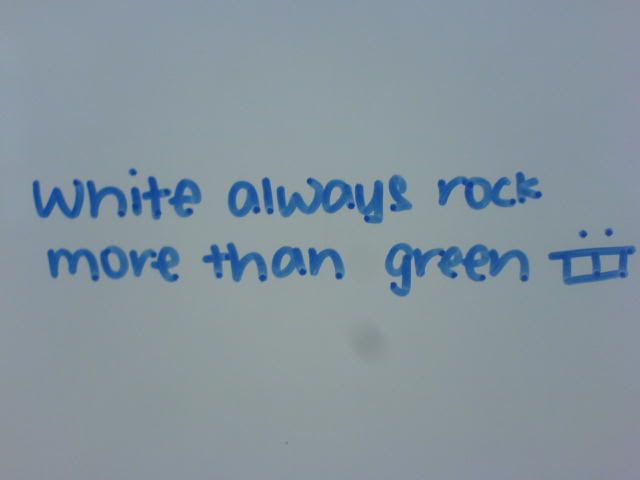 White always rock
more than green